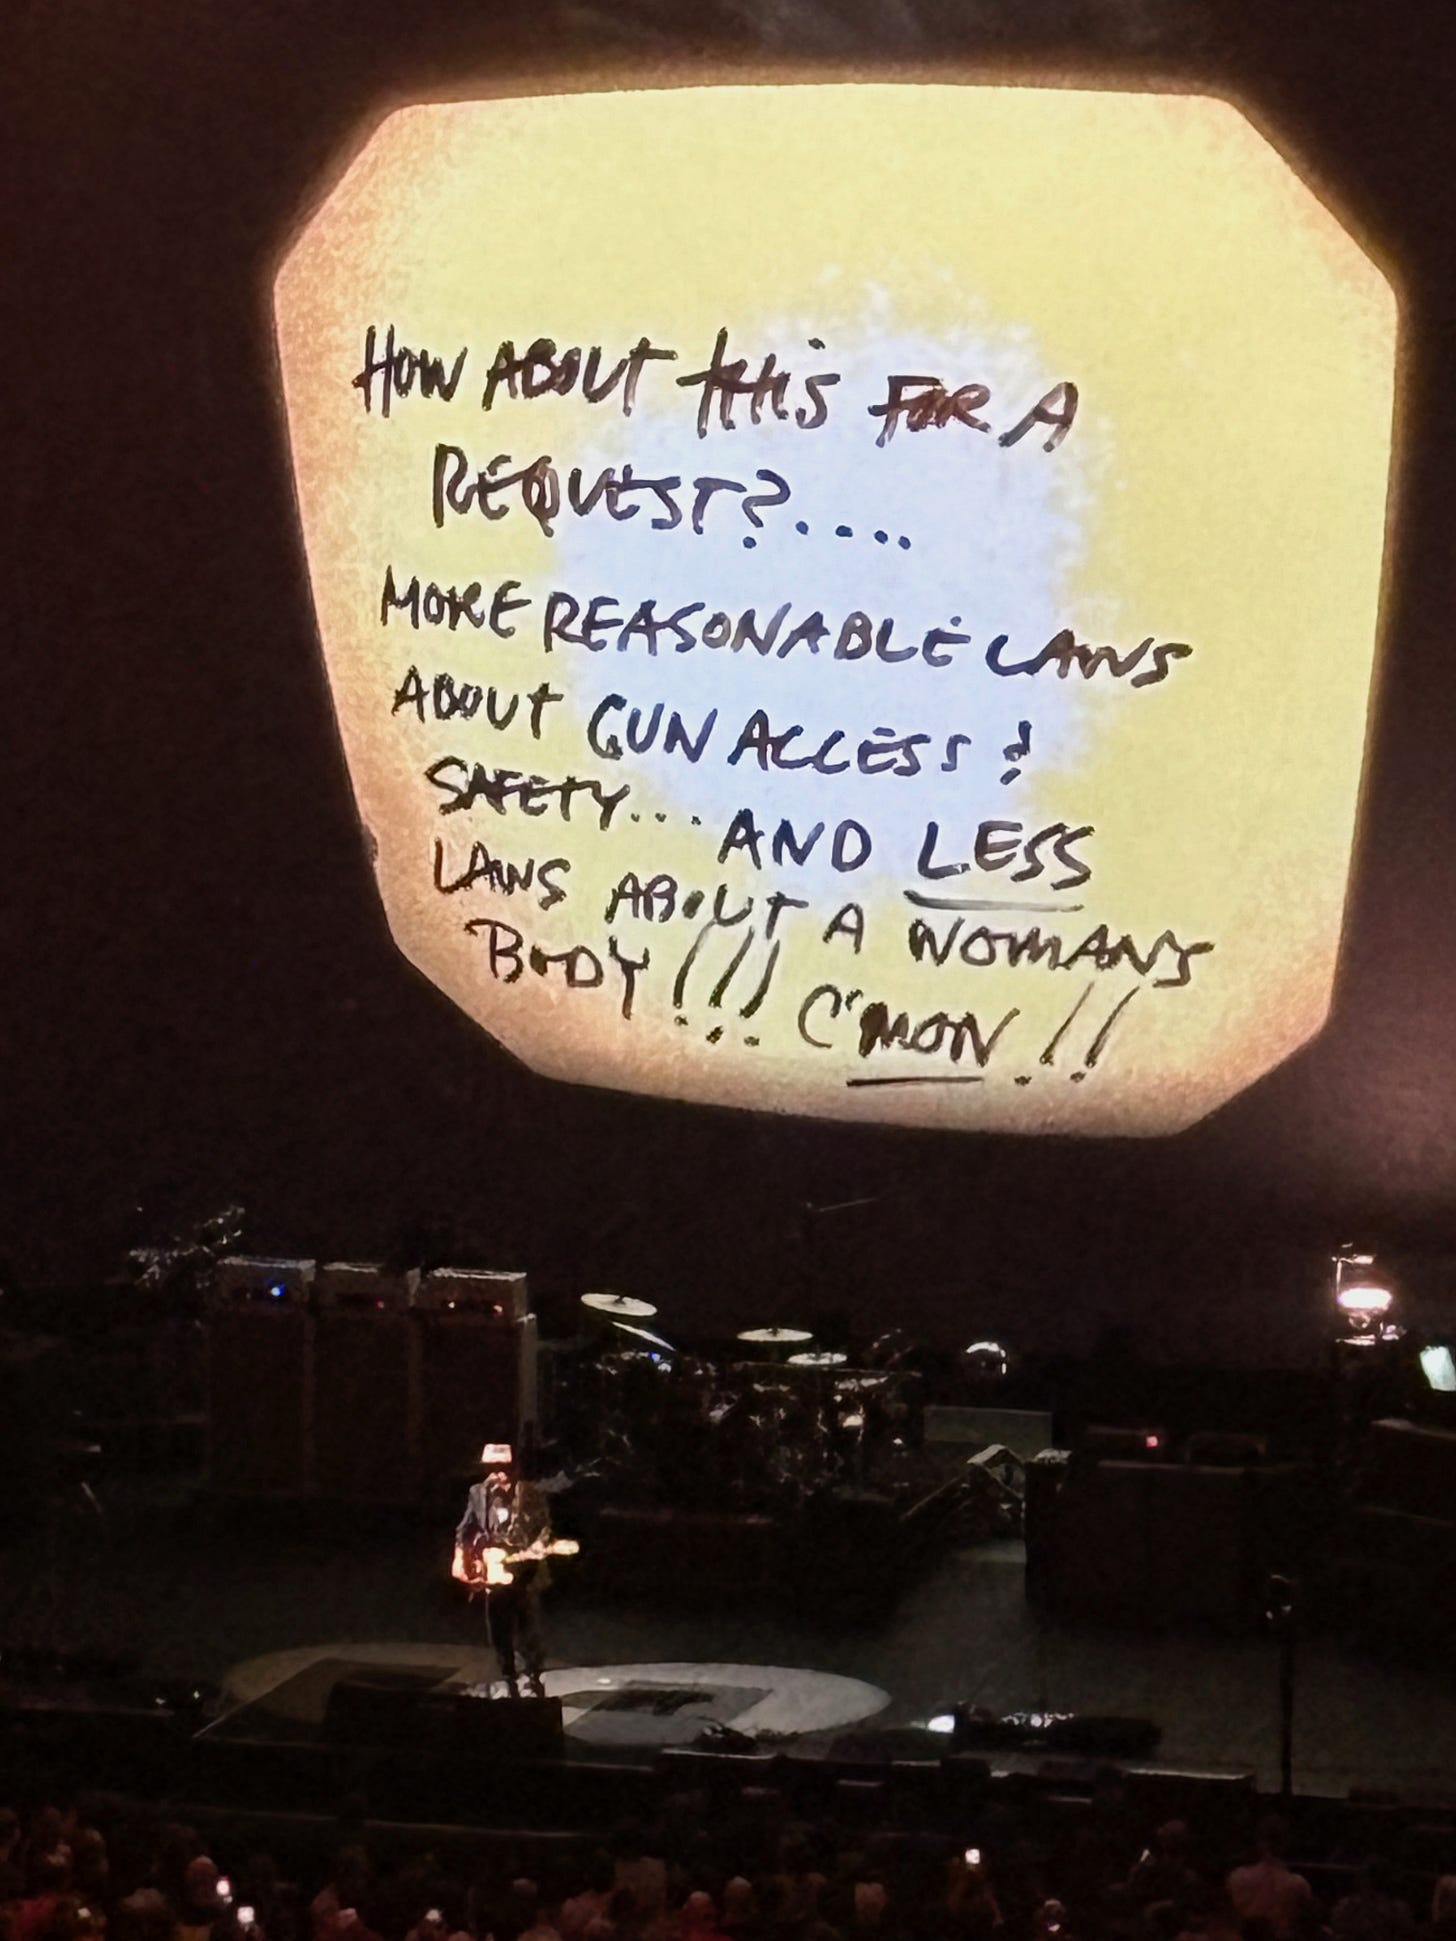 HOW ABOUT tHis FOR A
REQUEST?.....
MORE REASONABLE LAWS
ABOUT GUN ACCESS &
SAFETY... AND LESS
LAWS ABOUT A WOMANS
BODY!!! C'MON!!